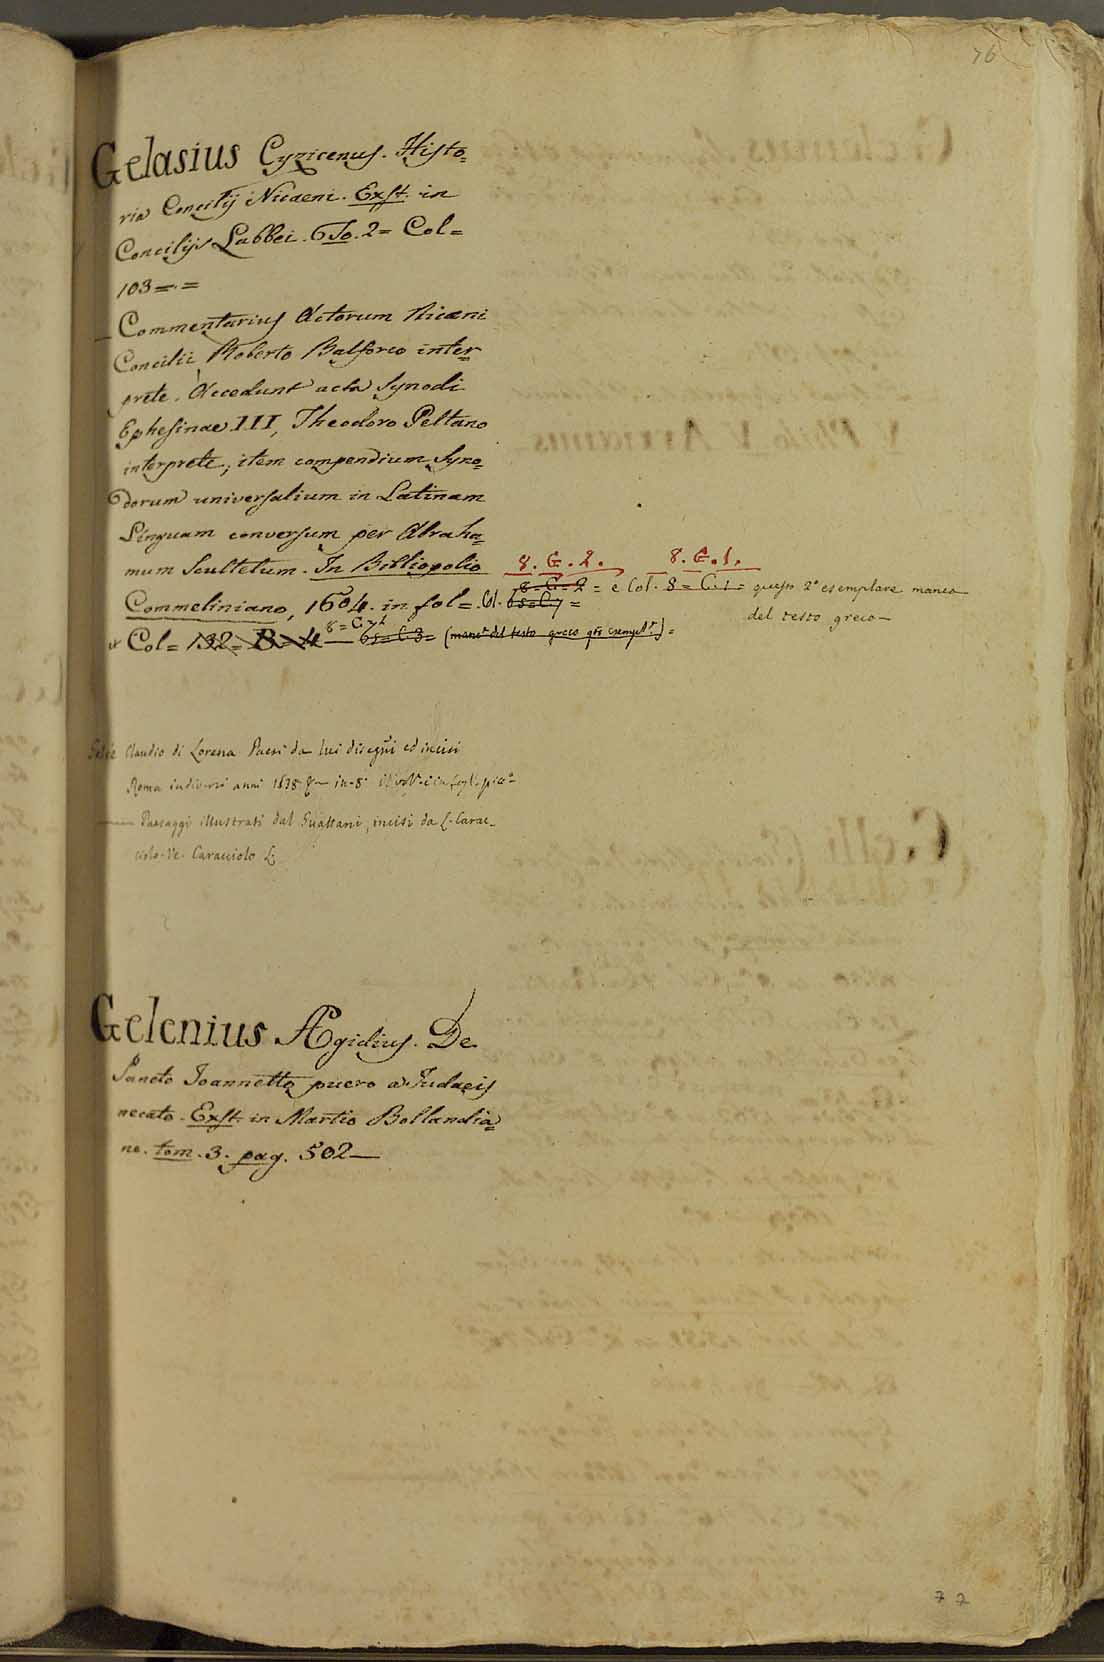 76
Gelasius Cyzicenus. Histo=
ria Concilij Nicaeni. Exst. in
Concilijs Labbei. To. 2= Col=
103=.=
_Commentarius Actorum Nicæni
Concilii, Roberto Balforeo inter=
prete. Accedunt acta Synodi
Ephesinae III, Theodoro Peltano
interprete, item compendium Syno=
dorum universalium in Latinam
Linguam conversum per Abraha=
mum Scultetum. In Bibliopolio
8. G. 2. 8. G. 1.
Commeliniano, 1604. in fol=. Col. 8=C=2= e Col. 8=C.1= questo 2º esemplare manca
del testo greco—
Col= 132= B=4
Claudio di Lorena Paesi da lui disegni ed incisi
Roma in diversi anni 1638
—— Paesaggi illustrati dal Guattani, incisi da L. Carac_
ciolo. Ve. Caracciolo L.
Gelenius Ægidius. De
Sancto Joannetto puero a Judaeis
necato. Exst. in Martio Bollandia=
no. tom. 3. pag. 502—
77